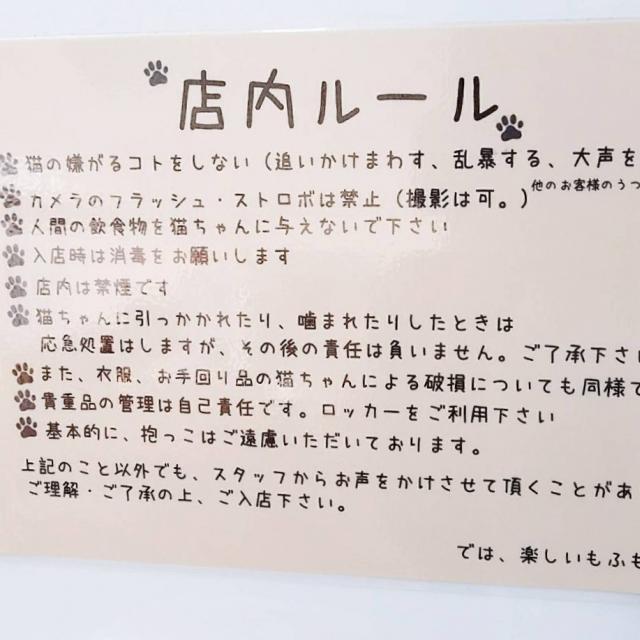 店内ルール
猫の嫌がるコトをしない（追いかけまわす、乱暴する、大声を
カメラのフラッシュ・ストロボは禁止（撮影は可。）他のお客様のうつ
人間の飲食物を猫ちゃんに与えないで下さい
入店時は消毒をお願いします
店内は禁煙です
猫ちゃんに引っかかれたり、噛まれたりしたときは
応急処置はしますが、その後の責任は負いません。ご了承下さい
また、衣服、お手回り品の猫ちゃんによる破損についても同様で
貴重品の管理は自己責任です。ロッカーをご利用下さい
基本的に、抱っこはご遠慮いただいております。
上記のこと以外でも、スタッフからお声をかけさせて頂くことがあ
ご理解・ご了承の上、ご入店下さい。
では、楽しいもふも